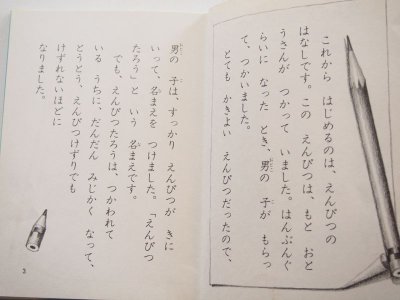 これから はじめるのは、えんぴつの
はなしです。この えんぴつは、もと おと
うさんが つかって いました。はんぶんぐ
らいに なった とき、男の 子が もらっ
て、つかいました。
とても かきよい えんぴつだったので、
男の 子は、すっかり えんぴつが きに
いって、名まえを つけました。「えんぴつ
たろう」と いう 名まえです。
でも、えんぴつたろうは、つかわれて
いる うちに、だんだん みじかく なって、
とうとう、えんぴつけずりでも
けずれないほどに
なりました。
3